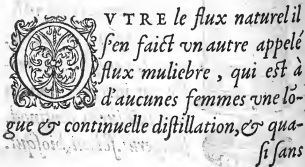 OVTRE le flux naturel il
ſ'en faict vn autre appelé
flux muliebre, qui eſt à
d'aucunes femmes vne lõ-
gue & continuelle diſtillation, & qua-
ſi ſans